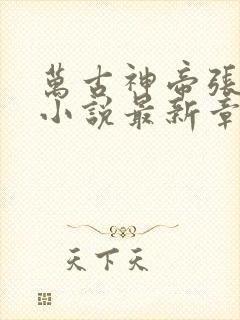 萬古神帝張
小說最新章
天下天